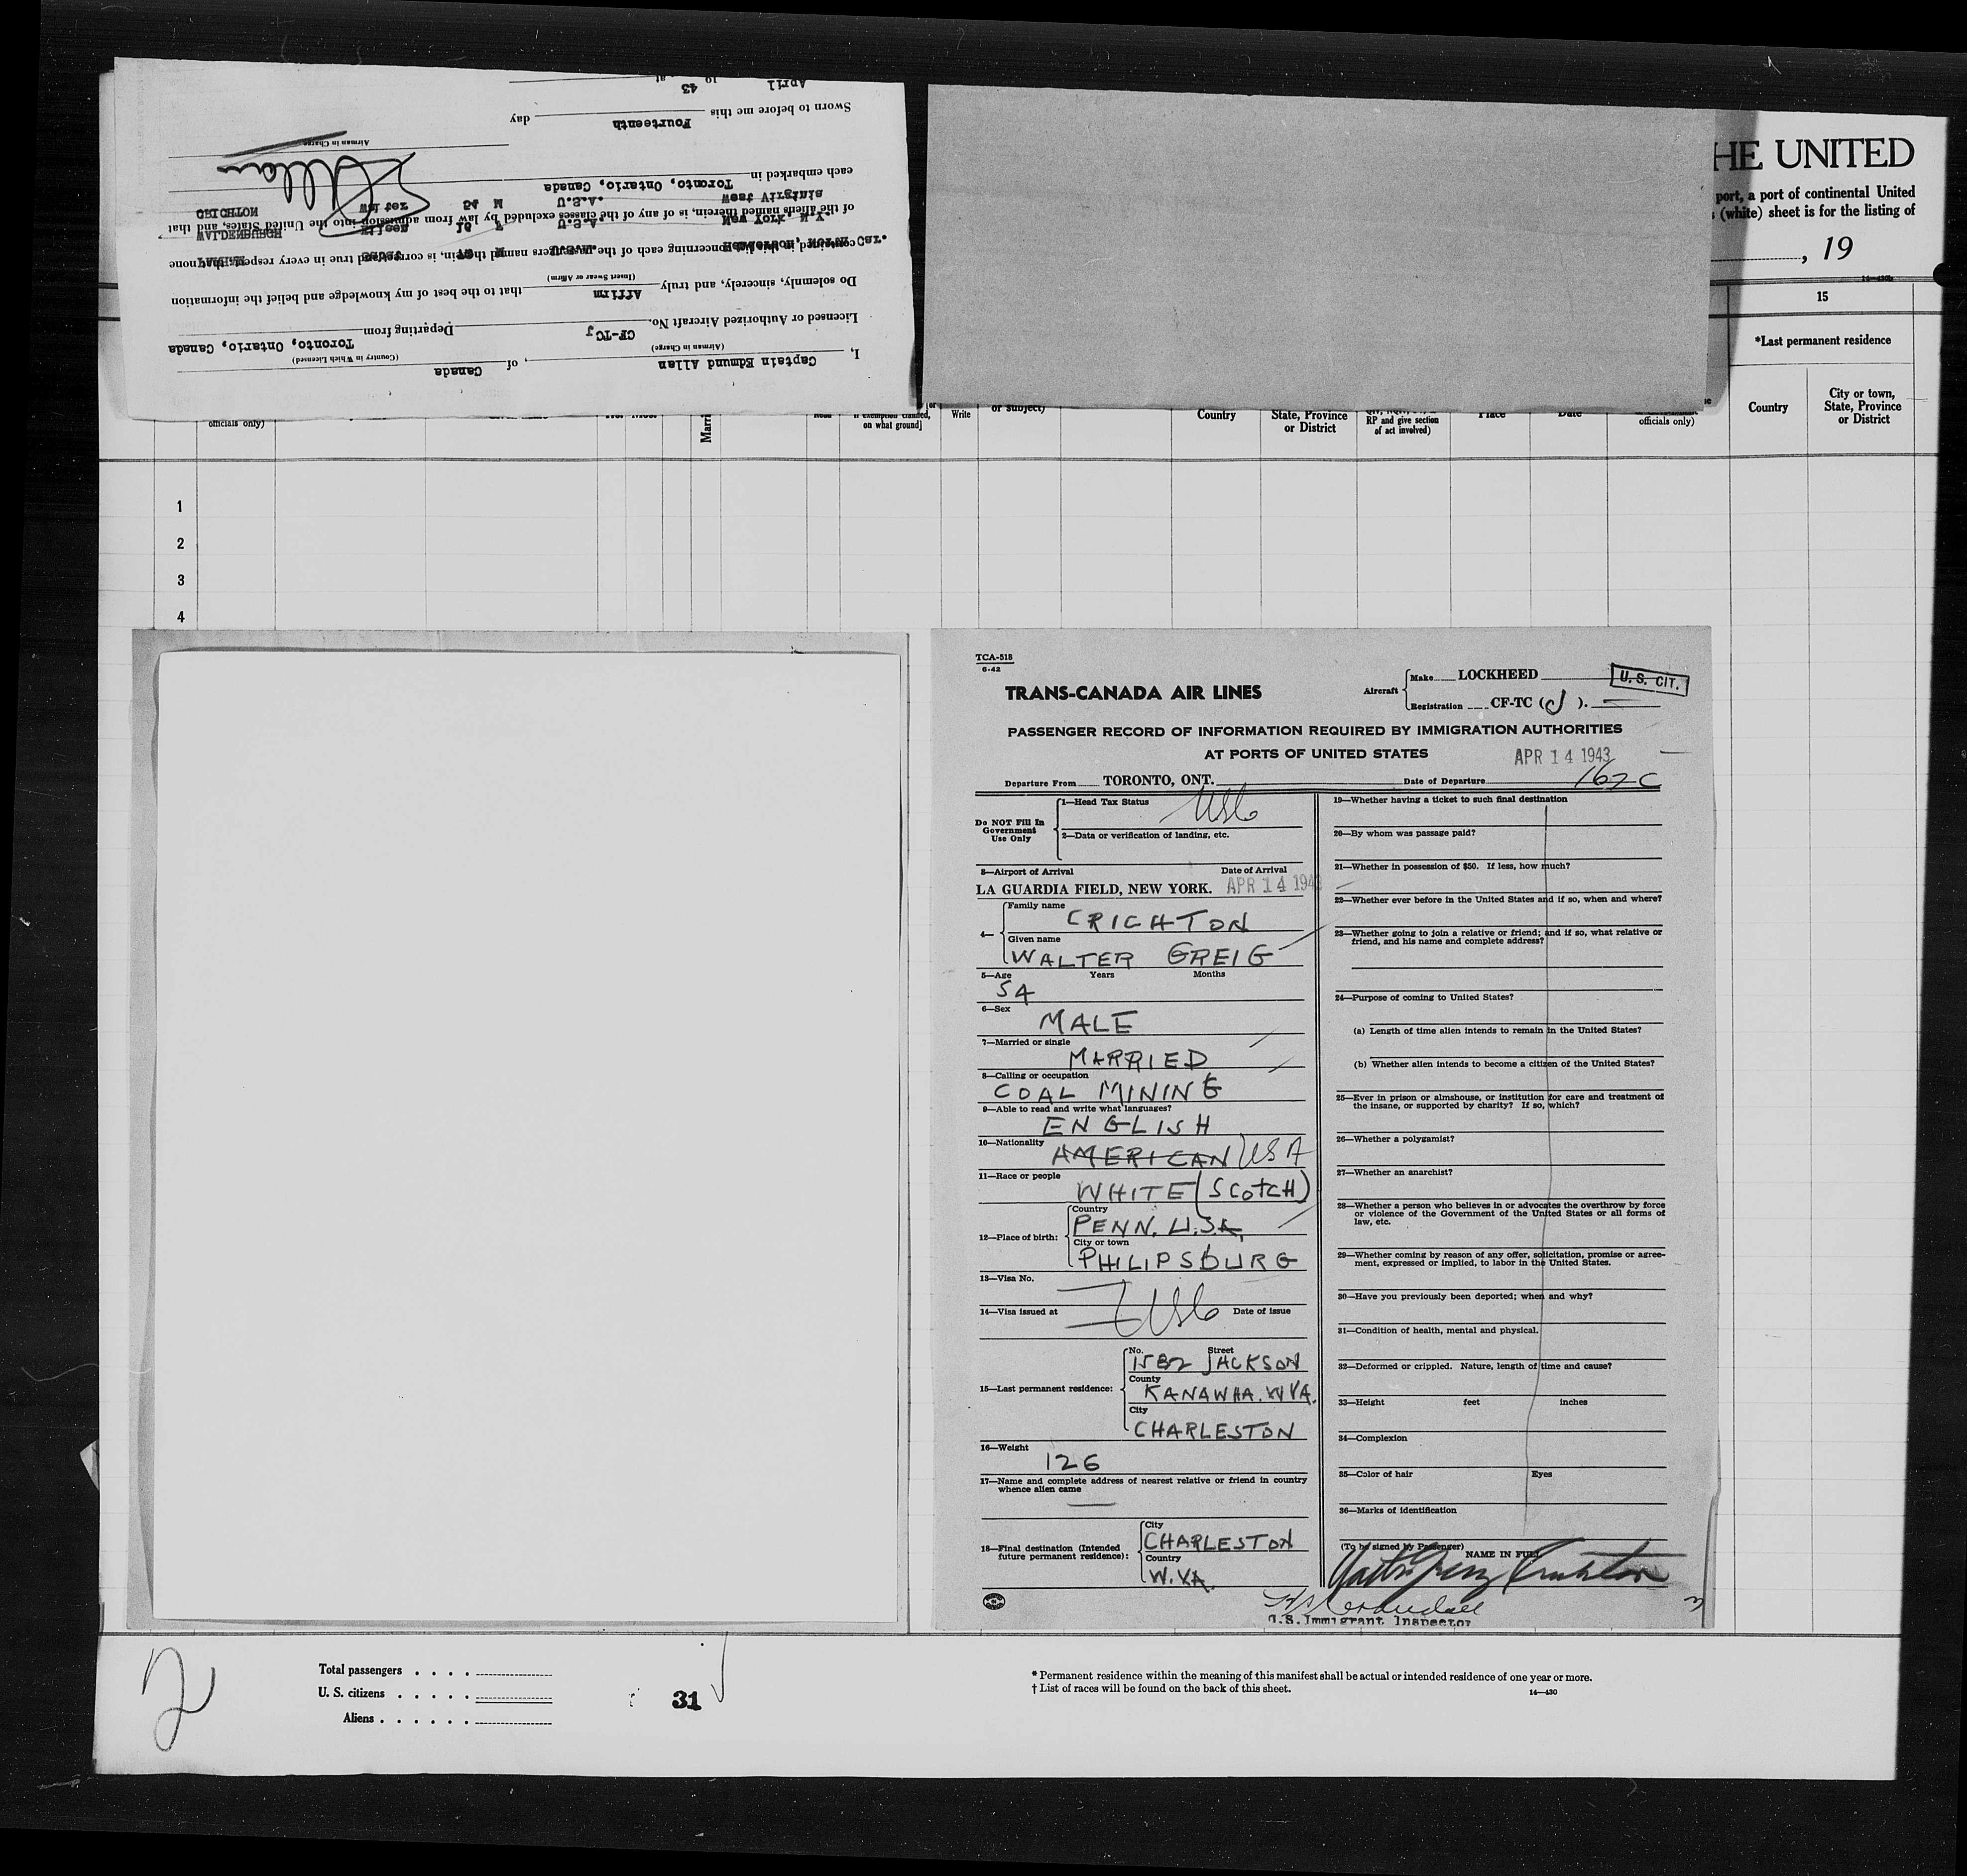 I, Captain Edmund Allan, of Canada
(Airman in Charge) (Country in Which Licensed)
Licensed or Authorized Aircraft No. CF-TCJ Departing from Toronto, Ontario, Canada
Do solemnly, sincerely, and truly Affirm that to the best of my knowledge and belief the information
(Insert Swear or Affirm)
contained in concerning each of the passengers named therein, is correct and true in every respect, that none
of the aliens named therein, is of any of the classes excluded by law from admission into the United States, and that
each embarked in Toronto, Ontario, Canada
Airman in Charge
Sworn to before me this Fourteenth day
April 19 43 at
HE UNITED
port, a port of continental United
(white) sheet is for the listing of
, 19
14—430
15
*Last permanent residence
Country
City or town, State, Province or District
officials only)
on what ground]
Write
or subject)
Country
State, Province
or District
RP and give section
of act involved)
Place
Date
officials only)
1
2
3
4
TCA-518
6-42
TRANS-CANADA AIR LINES
Aircraft
Make LOCKHEED
Registration CF-TC (J).
U. S. CIT.
PASSENGER RECORD OF INFORMATION REQUIRED BY IMMIGRATION AUTHORITIES
AT PORTS OF UNITED STATES
APR 14 1943
Departure From TORONTO, ONT. Date of Departure 167-C
Do NOT Fill In
Government
Use Only
1—Head Tax Status USC
2—Data or verification of landing, etc.
3—Airport of Arrival Date of Arrival
LA GUARDIA FIELD, NEW YORK. APR 14 194
4—
Family name
CRICHTON
Given name
WALTER GREIG
5—Age Years Months
54
6—Sex
MALE
7—Married or single
MARRIED
8—Calling or occupation
COAL MINING
9—Able to read and write what languages?
ENGLISH
10—Nationality
AMERICAN USA
11—Race or people
WHITE (SCOTCH)
12—Place of birth:
Country
PENN. U.S.A.
City or town
PHILIPSBURG
13—Visa No.
14—Visa issued at USC Date of issue
15—Last permanent residence:
No. Street
1582 JACKSON
County
KANAWHA. W VA.
City
CHARLESTON
16—Weight
126
17—Name and complete address of nearest relative or friend in country
whence alien came
18—Final destination (Intended
future permanent residence):
City
CHARLESTON
Country
W.VA.
19—Whether having a ticket to such final destination
20—By whom was passage paid?
21—Whether in possession of $50. If less, how much?
22—Whether ever before in the United States and if so, when and where?
23—Whether going to join a relative or friend; and if so, what relative or
friend, and his name and complete address?
24—Purpose of coming to United States?
(a) Length of time alien intends to remain in the United States?
(b) Whether alien intends to become a citizen of the United States?
25—Ever in prison or almshouse, or institution for care and treatment of
the insane, or supported by charity? If so, which?
26—Whether a polygamist?
27—Whether an anarchist?
28—Whether a person who believes in or advocates the overthrow by force
or violence of the Government of the United States or all forms of
law, etc.
29—Whether coming by reason of any offer, solicitation, promise or agree-
ment, expressed or implied, to labor in the United States.
30—Have you previously been deported; when and why?
31—Condition of health, mental and physical.
32—Deformed or crippled. Nature, length of time and cause?
33—Height feet inches
34—Complexion
35—Color of hair Eyes
36—Marks of identification
(To be signed by Passenger)
NAME IN FULL
Walter Greig Crichton
U.S. Immigrant Inspector
2
Total passengers . . . .
U. S. citizens . . . . .
Aliens . . . . . .
31
* Permanent residence within the meaning of this manifest shall be actual or intended residence of one year or more.
† List of races will be found on the back of this sheet.
14—430